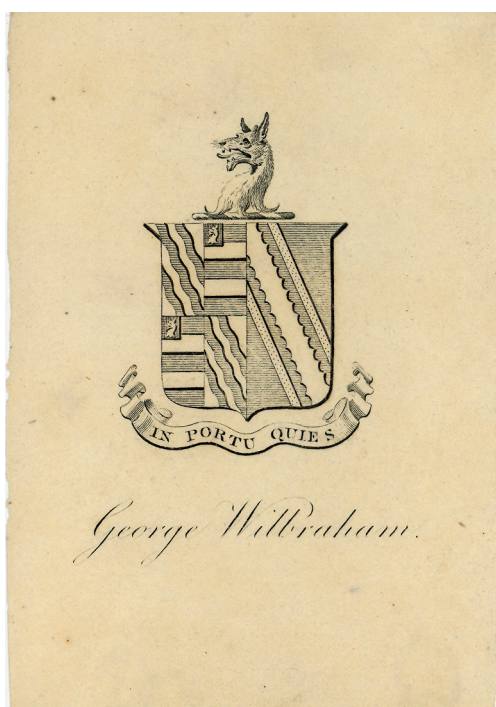 IN PORTU QUIES
George Wilbraham.